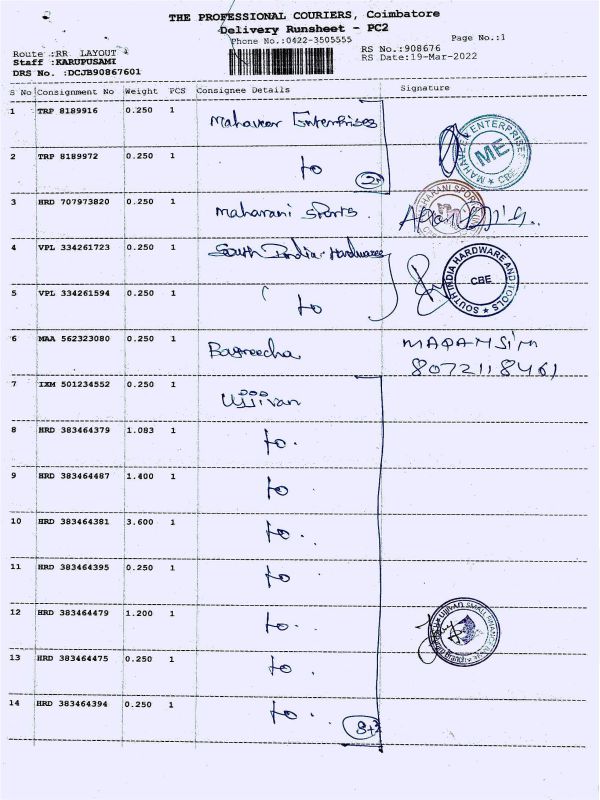 THE PROFESSIONAL COURIERS, Coimbatore
Delivery Runsheet - PC2
Phone No.:0422-3505555
Page No.:1
Route :RR LAYOUT
RS No.:908676
Staff :KARUPUSAMI
RS Date:19-Mar-2022
DRS No. :DCJB90867601
S No Consignment No Weight PCS Consignee Details Signature
1 TRP 8189916 0.250 1 Mahaveer Enterprises
MAHAVEER ENTERPRISES ME CBE
2 TRP 8189972 0.250 1 to 2
3 HRD 707973820 0.250 1 Maharani Sports
4 VPL 334261723 0.250 1 South India Hardwares
SOUTH INDIA HARDWARE AND TOOLS CBE
5 VPL 334261594 0.250 1 to
6 MAA 562323080 0.250 1 Bagreecha
8072118461
7 IXM 501234552 0.250 1 Ujjivan
8 HRD 383464379 1.083 1 to
9 HRD 383464487 1.400 1 to
10 HRD 383464381 3.600 1 to
11 HRD 383464395 0.250 1 to
12 HRD 383464479 1.200 1 to
13 HRD 383464475 0.250 1 to
14 HRD 383464394 0.250 1 to